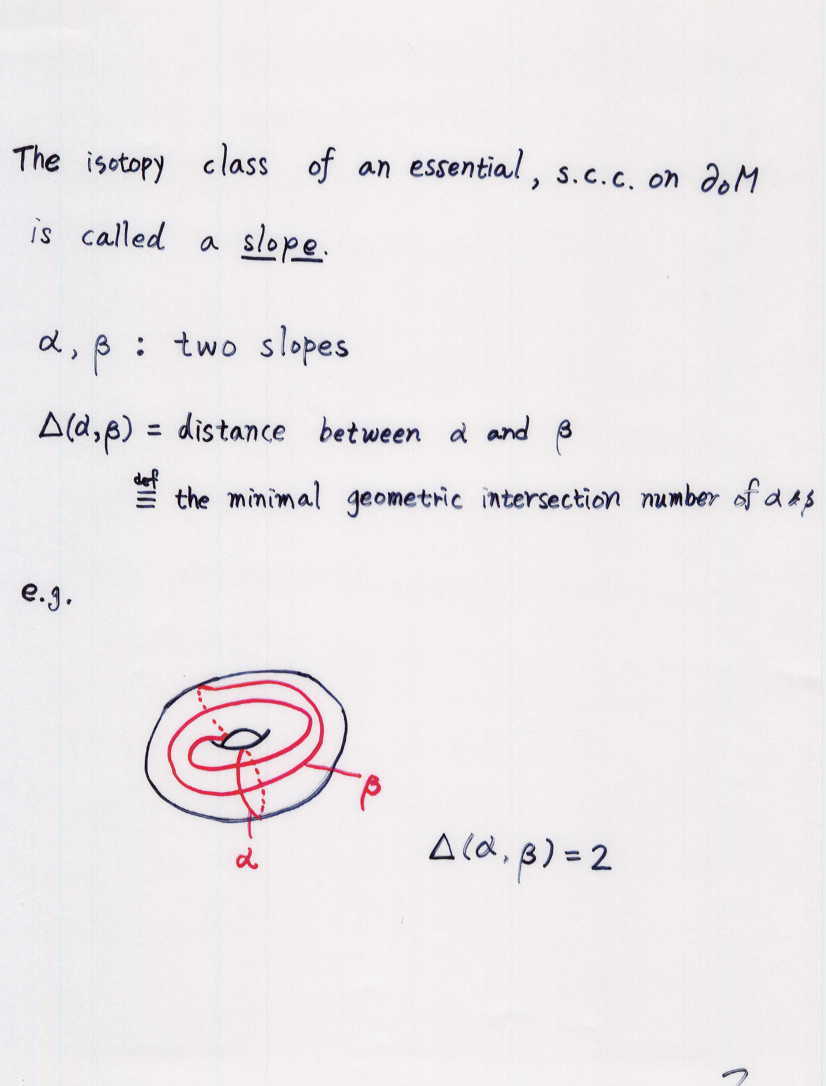 The isotopy class of an essential, s.c.c. on ∂₀M
is called a slope.
α, β : two slopes
Δ(α,β) = distance between α and β
≡def the minimal geometric intersection number of α & β
e.g.
β
α
Δ(α,β) = 2